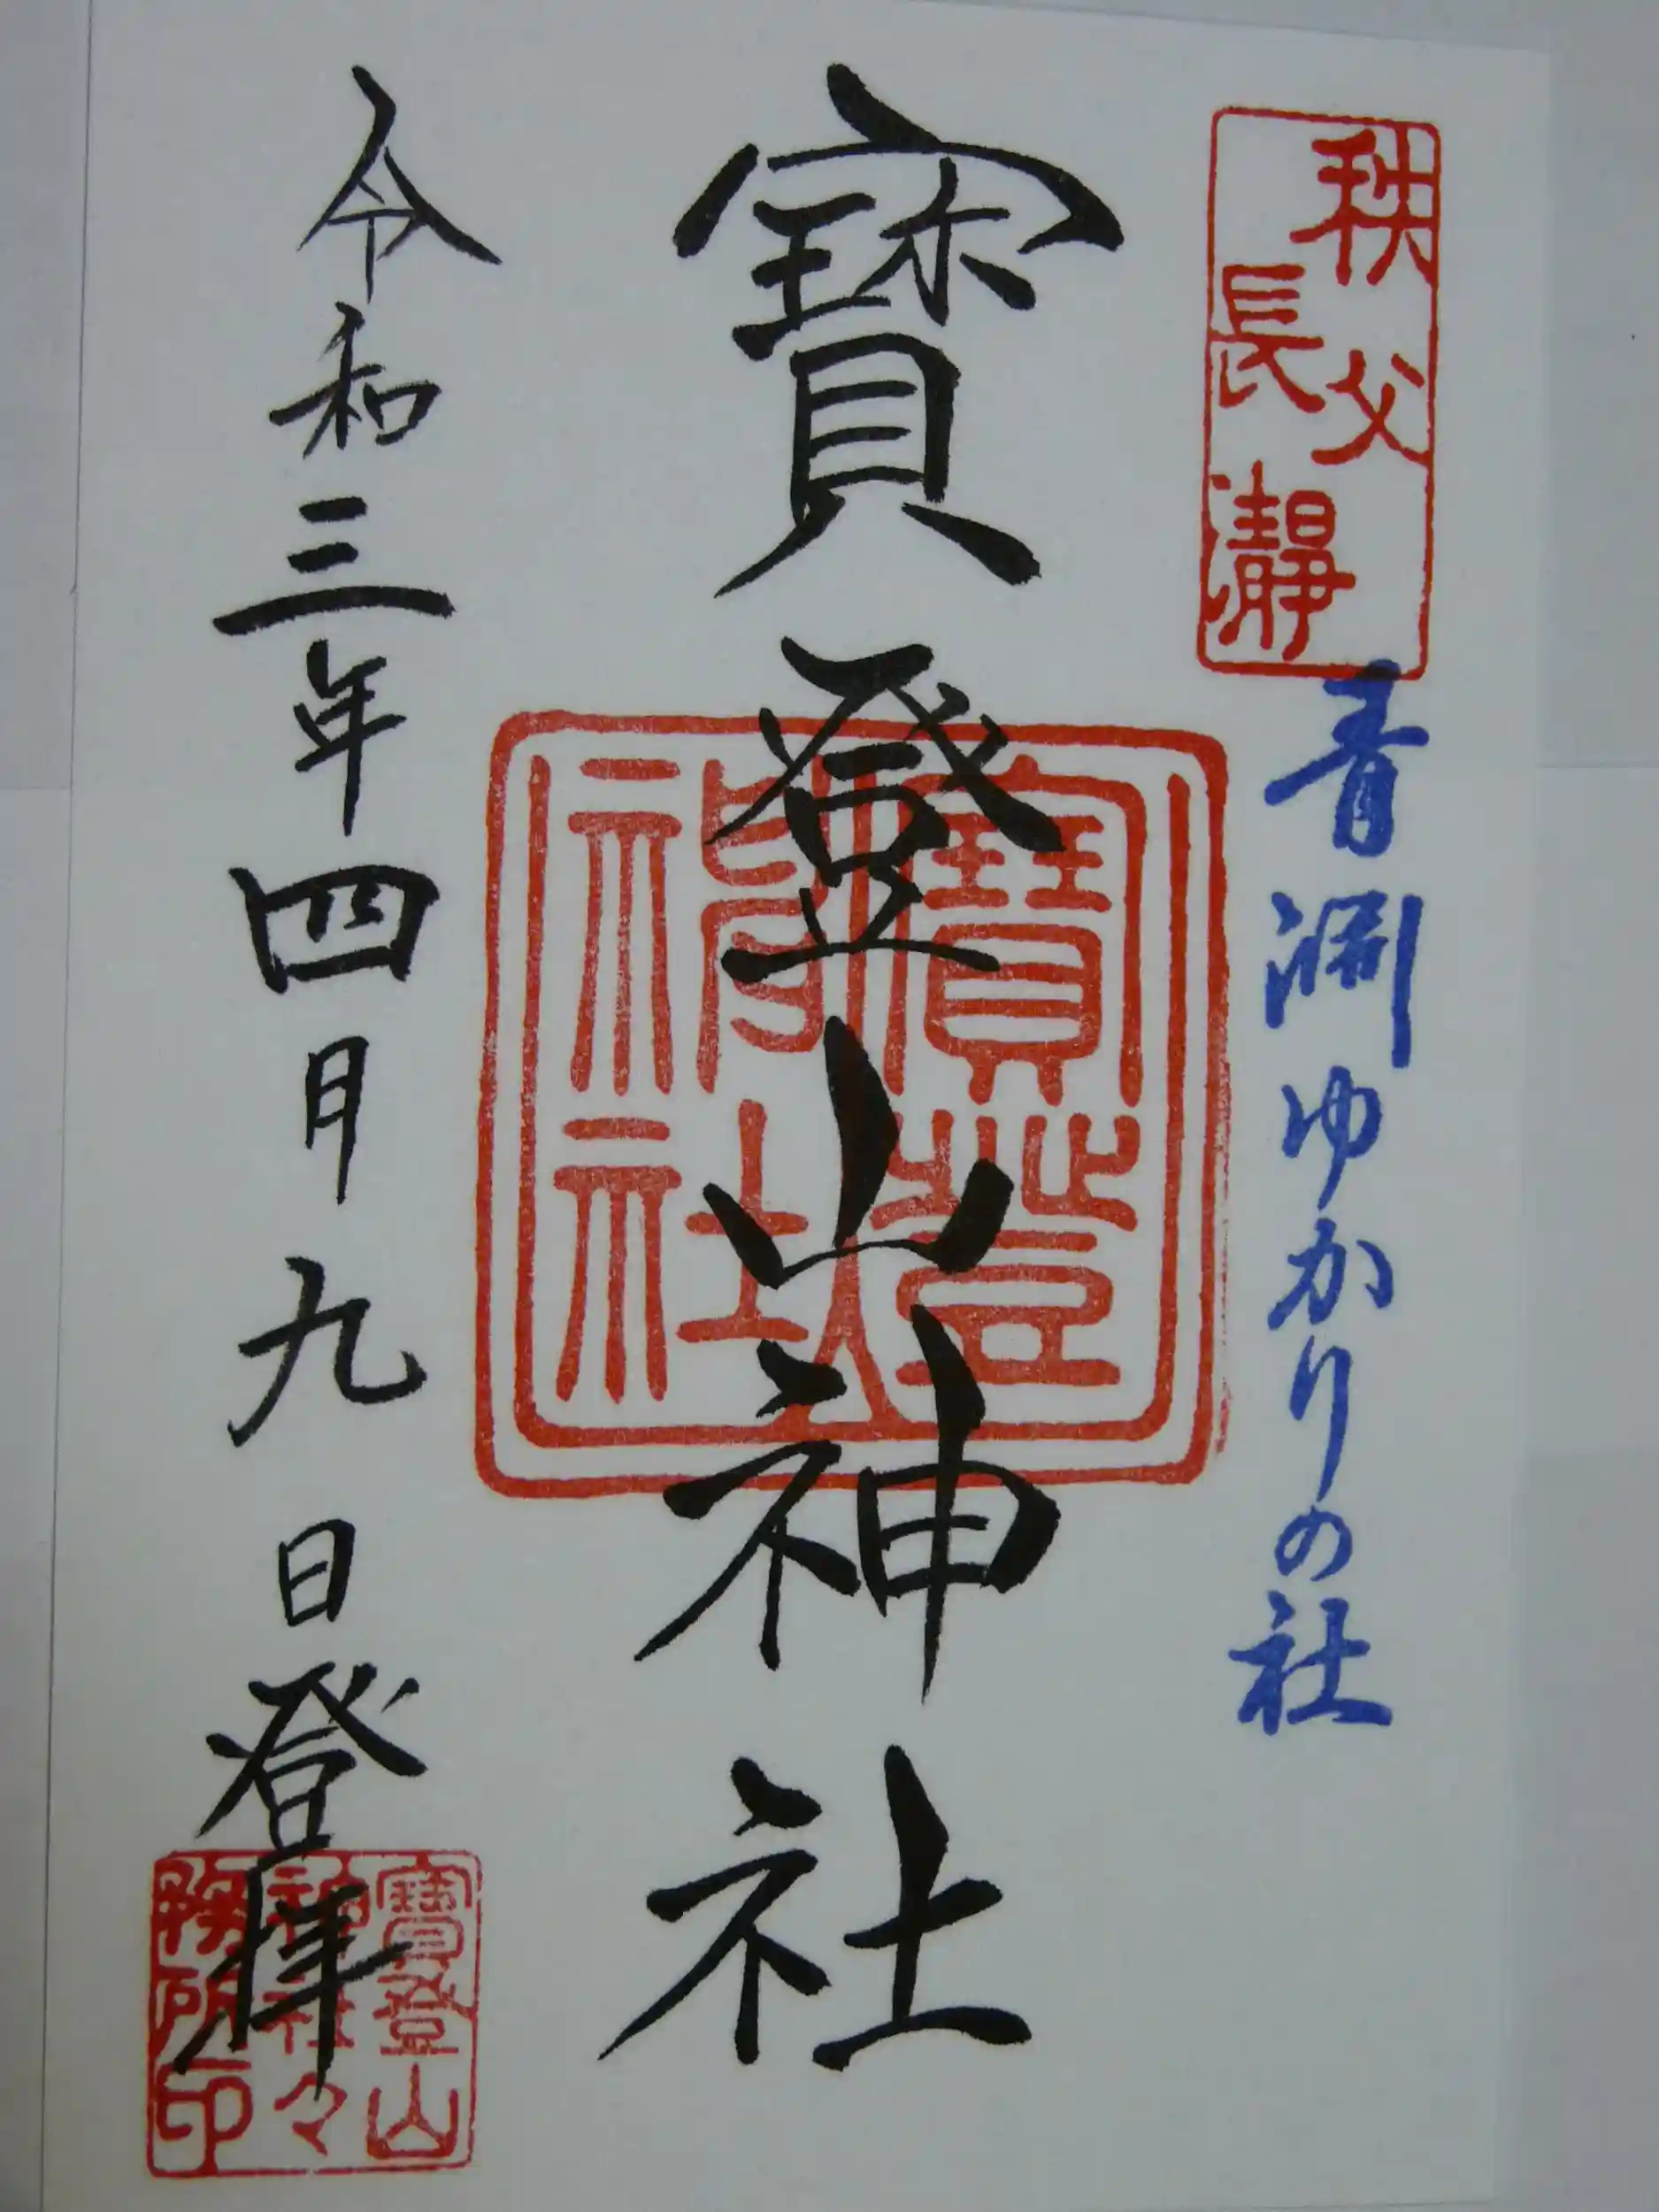 秩父
長瀞
青淵ゆかりの社
寶登山神社
寶登山
神社
令和三年四月九日登拝
寶登山
神社々
務所印